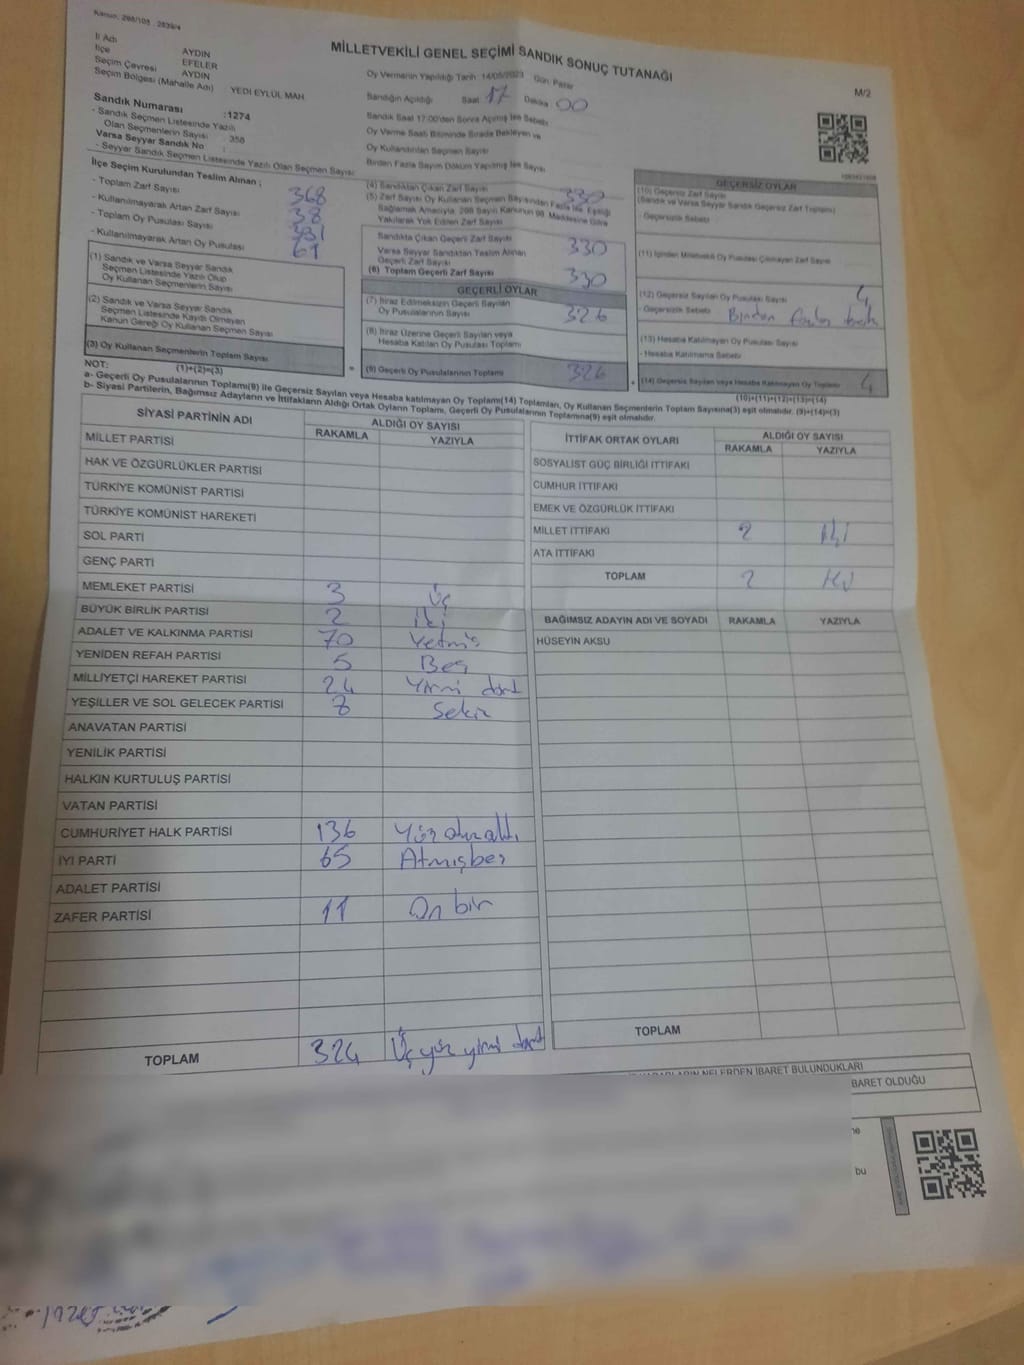 Kanun, 298/105 , 2839/4
MİLLETVEKİLİ GENEL SEÇİMİ SANDIK SONUÇ TUTANAĞI
M/2
İl Adı AYDIN
İlçe EFELER
Seçim Çevresi AYDIN
Seçim Bölgesi (Mahalle Adı) YEDİ EYLÜL MAH
Sandık Numarası :1274
- Sandık Seçmen Listesinde Yazılı
Olan Seçmenlerin Sayısı : 358
Varsa Seyyar Sandık No :
- Seyyar Sandık Seçmen Listesinde Yazılı Olan Seçmen Sayısı
Oy Vermenin Yapıldığı Tarih 14/05/2023 Gün Pazar
Sandığın Açıldığı Saat 17 Dakika 00
Sandık Saat 17:00'den Sonra Açılmış İse Sebebi
Oy Verme Saati Bitiminde Sırada Bekleyen ve
Oy Kullandırılan Seçmen Sayısı
Birden Fazla Sayım Döküm Yapılmış İse Sayısı
İlçe Seçim Kurulundan Teslim Alınan ;
- Toplam Zarf Sayısı 368
- Kullanılmayarak Artan Zarf Sayısı 38
- Toplam Oy Pusulası Sayısı
- Kullanılmayarak Artan Oy Pusulası 61
(1) Sandık ve Varsa Seyyar Sandık
Seçmen Listesinde Yazılı Olup
Oy Kullanan Seçmenlerin Sayısı
(2) Sandık ve Varsa Seyyar Sandık
Seçmen Listesinde Kaydı Olmayan
Kanun Gereği Oy Kullanan Seçmen Sayısı
(3) Oy Kullanan Seçmenlerin Toplam Sayısı
(1)+(2)=(3)
(4) Sandıktan Çıkan Zarf Sayısı 330
(5) Zarf Sayısı Oy Kullanan Seçmen Sayısından Fazla İse, Eşitliği
Sağlamak Amacıyla, 298 Sayılı Kanunun 98. Maddesine Göre
Yakılarak Yok Edilen Zarf Sayısı
Sandıkta Çıkan Geçerli Zarf Sayısı 330
Varsa Seyyar Sandıktan Teslim Alınan
Geçerli Zarf Sayısı
(6) Toplam Geçerli Zarf Sayısı 330
GEÇERLİ OYLAR
(7) İtiraz Edilmeksizin Geçerli Sayılan
Oy Pusulalarının Sayısı 326
(8) İtiraz Üzerine Geçerli Sayılan veya
Hesaba Katılan Oy Pusulası Toplamı
(9) Geçerli Oy Pusulalarının Toplamı 326
GEÇERSİZ OYLAR
(10) Geçersiz Zarf Sayısı
(Sandık ve Varsa Seyyar Sandık Geçersiz Zarf Toplamı)
- Geçersizlik Sebebi
(11) İçinden Milletvekili Oy Pusulası Çıkmayan Zarf Sayısı
(12) Geçersiz Sayılan Oy Pusulası Sayısı 4
- Geçersizlik Sebebi Birden fazla
(13) Hesaba Katılmayan Oy Pusulası Sayısı
- Hesaba Katılmama Sebebi
(14) Geçersiz Sayılan veya Hesaba Katılmayan Oy Toplamı 4
(10)+(11)+(12)+(13)=(14)
NOT:
a- Geçerli Oy Pusulalarının Toplamı(9) ile Geçersiz Sayılan veya Hesaba katılmayan Oy Toplamı(14) Toplamları, Oy Kullanan Seçmenlerin Toplam Sayısına(3) eşit olmalıdır. (9)+(14)=(3)
b- Siyasi Partilerin, Bağımsız Adayların ve İttifakların Aldığı Ortak Oyların Toplamı, Geçerli Oy Pusulalarının Toplamına(9) eşit olmalıdır.
SİYASİ PARTİNİN ADI ALDIĞI OY SAYISI
RAKAMLA YAZIYLA
MİLLET PARTİSİ
HAK VE ÖZGÜRLÜKLER PARTİSİ
TÜRKİYE KOMÜNİST PARTİSİ
TÜRKİYE KOMÜNİST HAREKETİ
SOL PARTİ
GENÇ PARTİ
MEMLEKET PARTİSİ 3 Üç
BÜYÜK BİRLİK PARTİSİ 2 İki
ADALET VE KALKINMA PARTİSİ 70 Yetmiş
YENİDEN REFAH PARTİSİ 5 Beş
MİLLİYETÇİ HAREKET PARTİSİ 24 Yirmi dört
YEŞİLLER VE SOL GELECEK PARTİSİ 8 Sekiz
ANAVATAN PARTİSİ
YENİLİK PARTİSİ
HALKIN KURTULUŞ PARTİSİ
VATAN PARTİSİ
CUMHURİYET HALK PARTİSİ 136 Yüz otuz altı
İYİ PARTİ 65 Atmışbeş
ADALET PARTİSİ
ZAFER PARTİSİ 11 On bir
TOPLAM 324 Üç yüz yirmi dört
İTTİFAK ORTAK OYLARI ALDIĞI OY SAYISI
RAKAMLA YAZIYLA
SOSYALİST GÜÇ BİRLİĞİ İTTİFAKI
CUMHUR İTTİFAKI
EMEK VE ÖZGÜRLÜK İTTİFAKI
MİLLET İTTİFAKI 2 İki
ATA İTTİFAKI
TOPLAM 2 İki
BAĞIMSIZ ADAYIN ADI VE SOYADI RAKAMLA YAZIYLA
HÜSEYİN AKSU
TOPLAM
NELERDEN İBARET BULUNDUKLARI
BARET OLDUĞU
bu